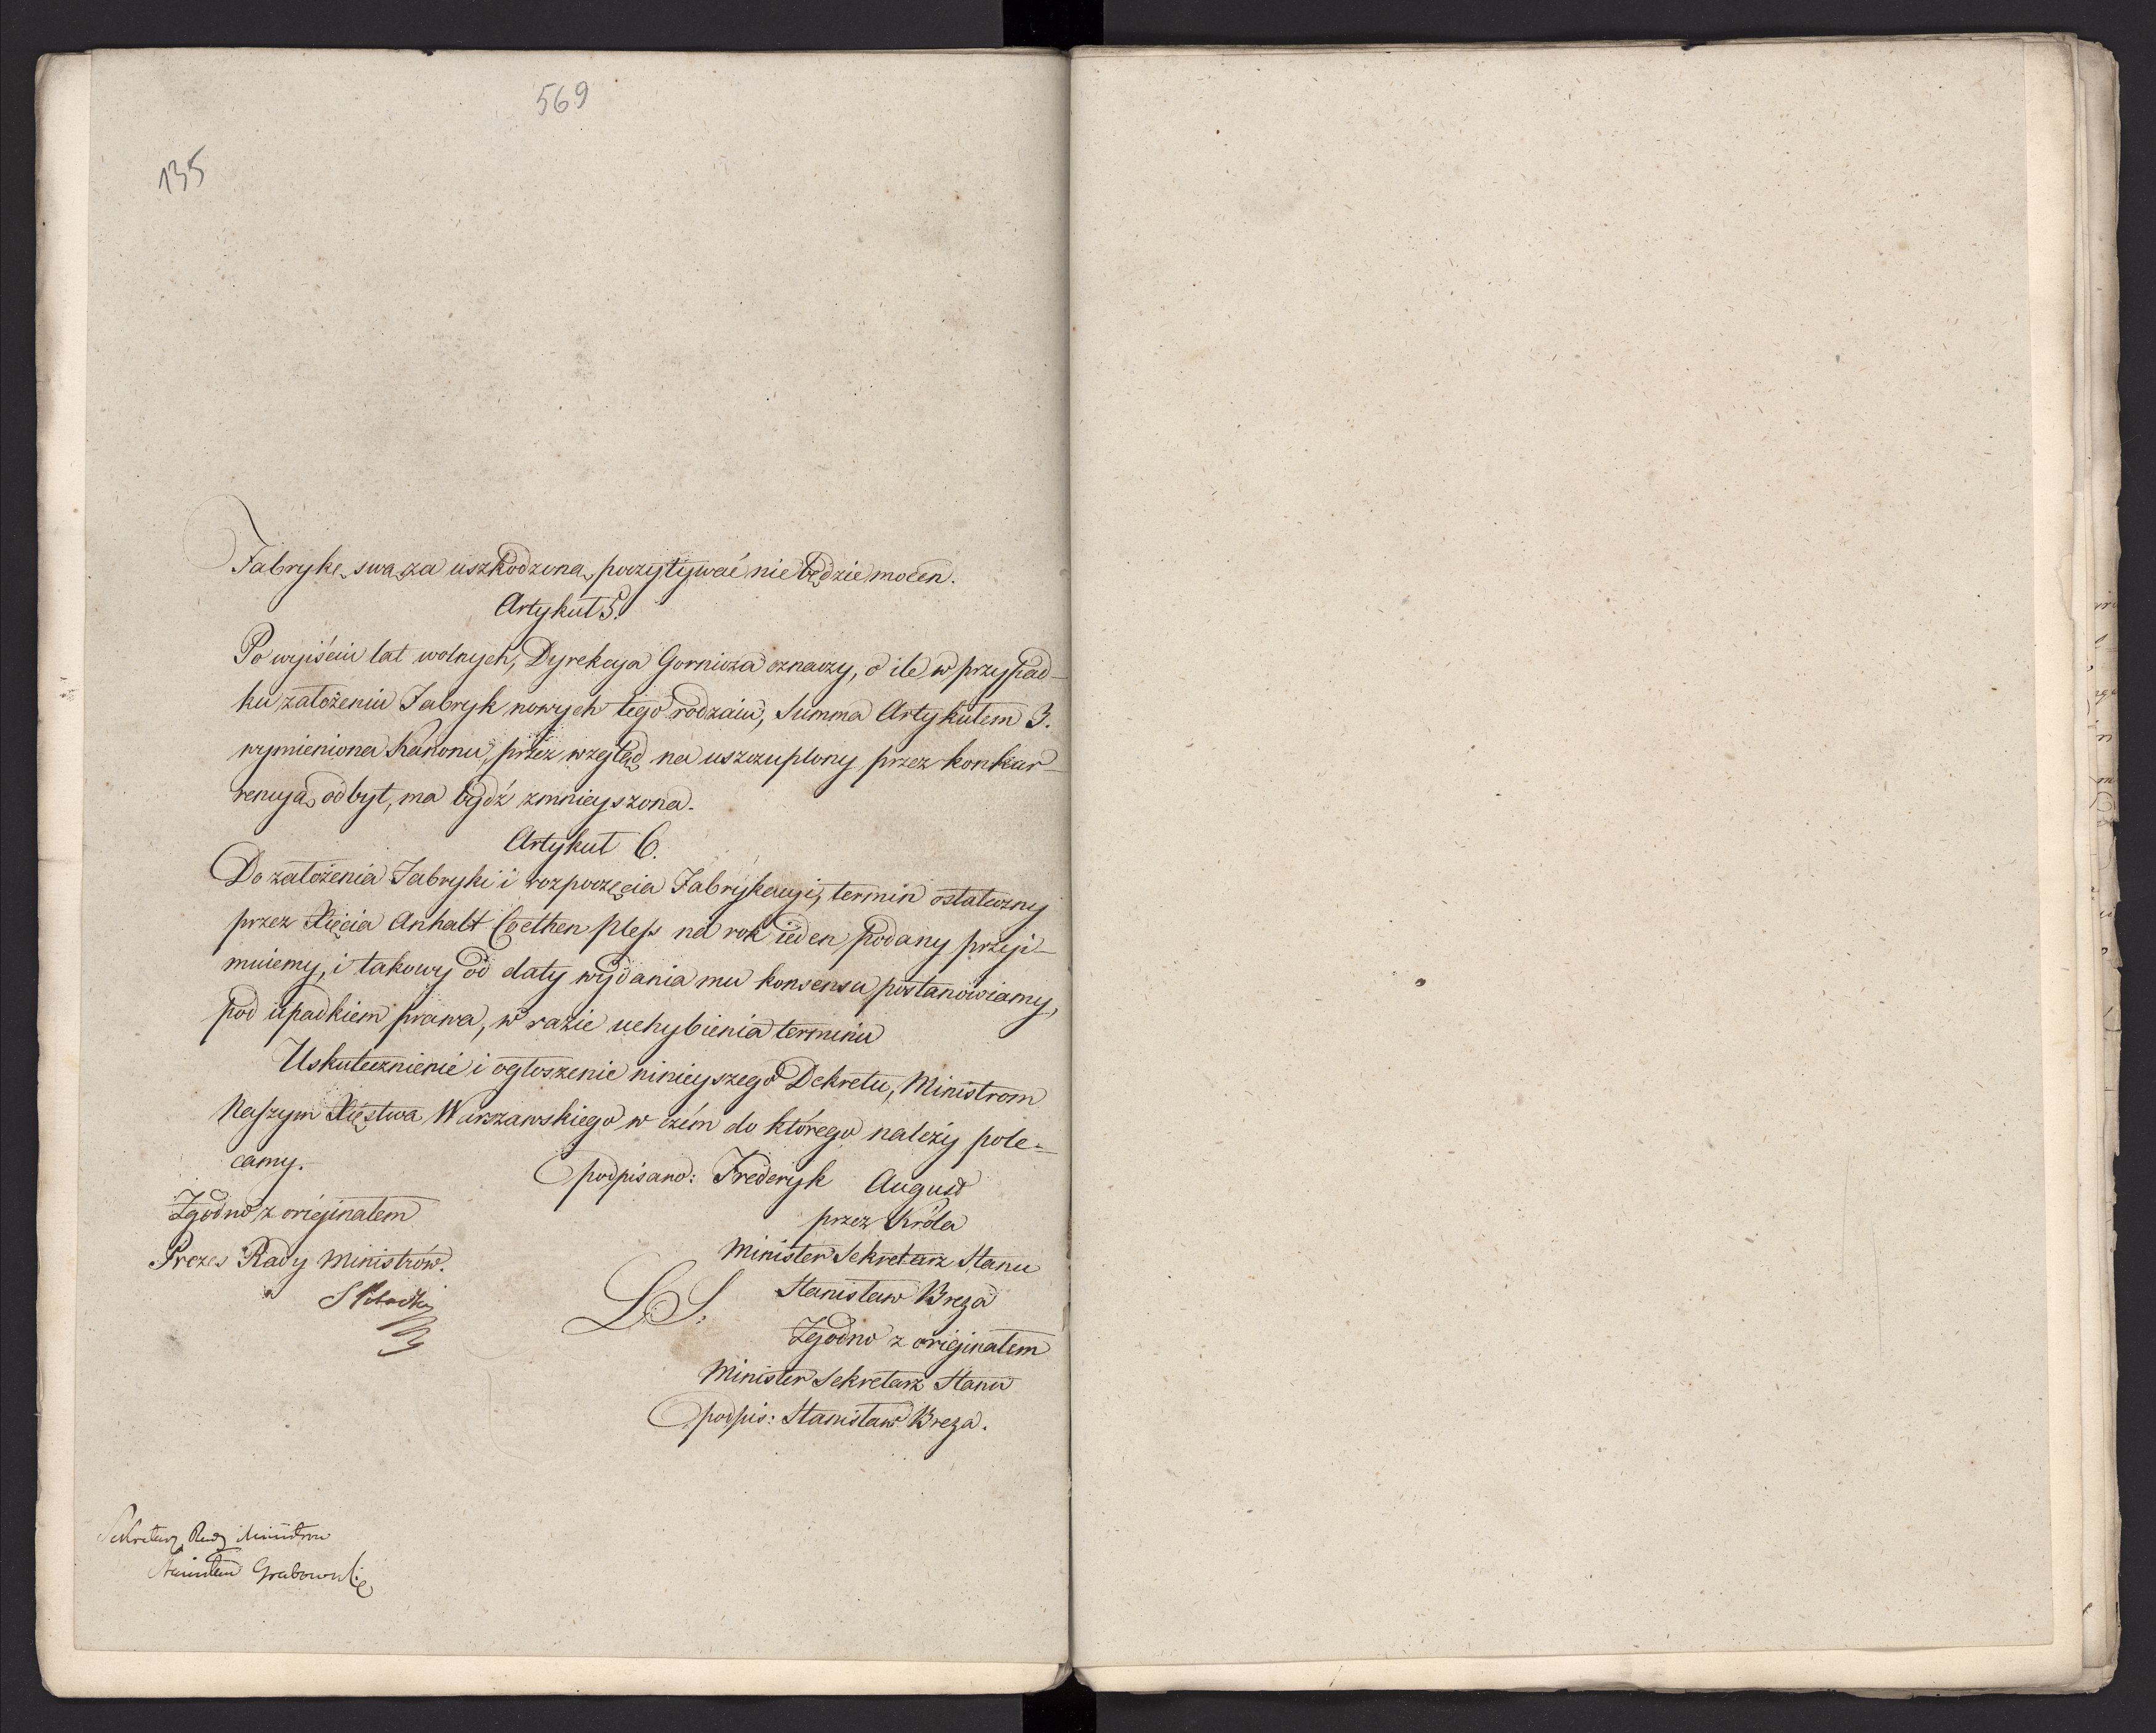 569
135
Fabrykę swą za uszkodzoną poczytywać nie będzie mocen.
Artykuł 5.
Po wyiściu lat wolnych, Dyrekcya Gornicza oznaczy, o ile w przypad-
ku założeniu Fabryk nowych tego rodzaiu, Summa Artykułem 3.
wymieniona Kanonu, przez wzgląd na uszczuplony przez konkur-
rencyą odbyt, ma bydź zmnieyszona.
Artykuł 6.
Do założenia Fabryki i rozpoczęcia Fabrykacyi, termin ostateczny
przez Xięcia Anhalt Coethen Pless na rok ieden podany przyi-
muiemy, i takowy od daty wydania mu konsensu postanowiamy,
pod upadkiem prawa, w razie uchybienia terminu
Uskutecznienie i ogłoszenie ninieyszego Dekretu, Ministrom
Naszym Xięstwa Warszawskiego w czém do którego należy pole-
camy.
podpisano: Frederyk August
Zgodno z originałem
przez Króla
Prezes Rady Ministrów.
Minister Sekretarz Stanu
L.S. Stanisław Breza
Zgodno z originałem
Minister Sekretarz Stanu
podpis: Stanisław Breza.
Sekretarz Rady Ministrow
Stanisław Grabowski